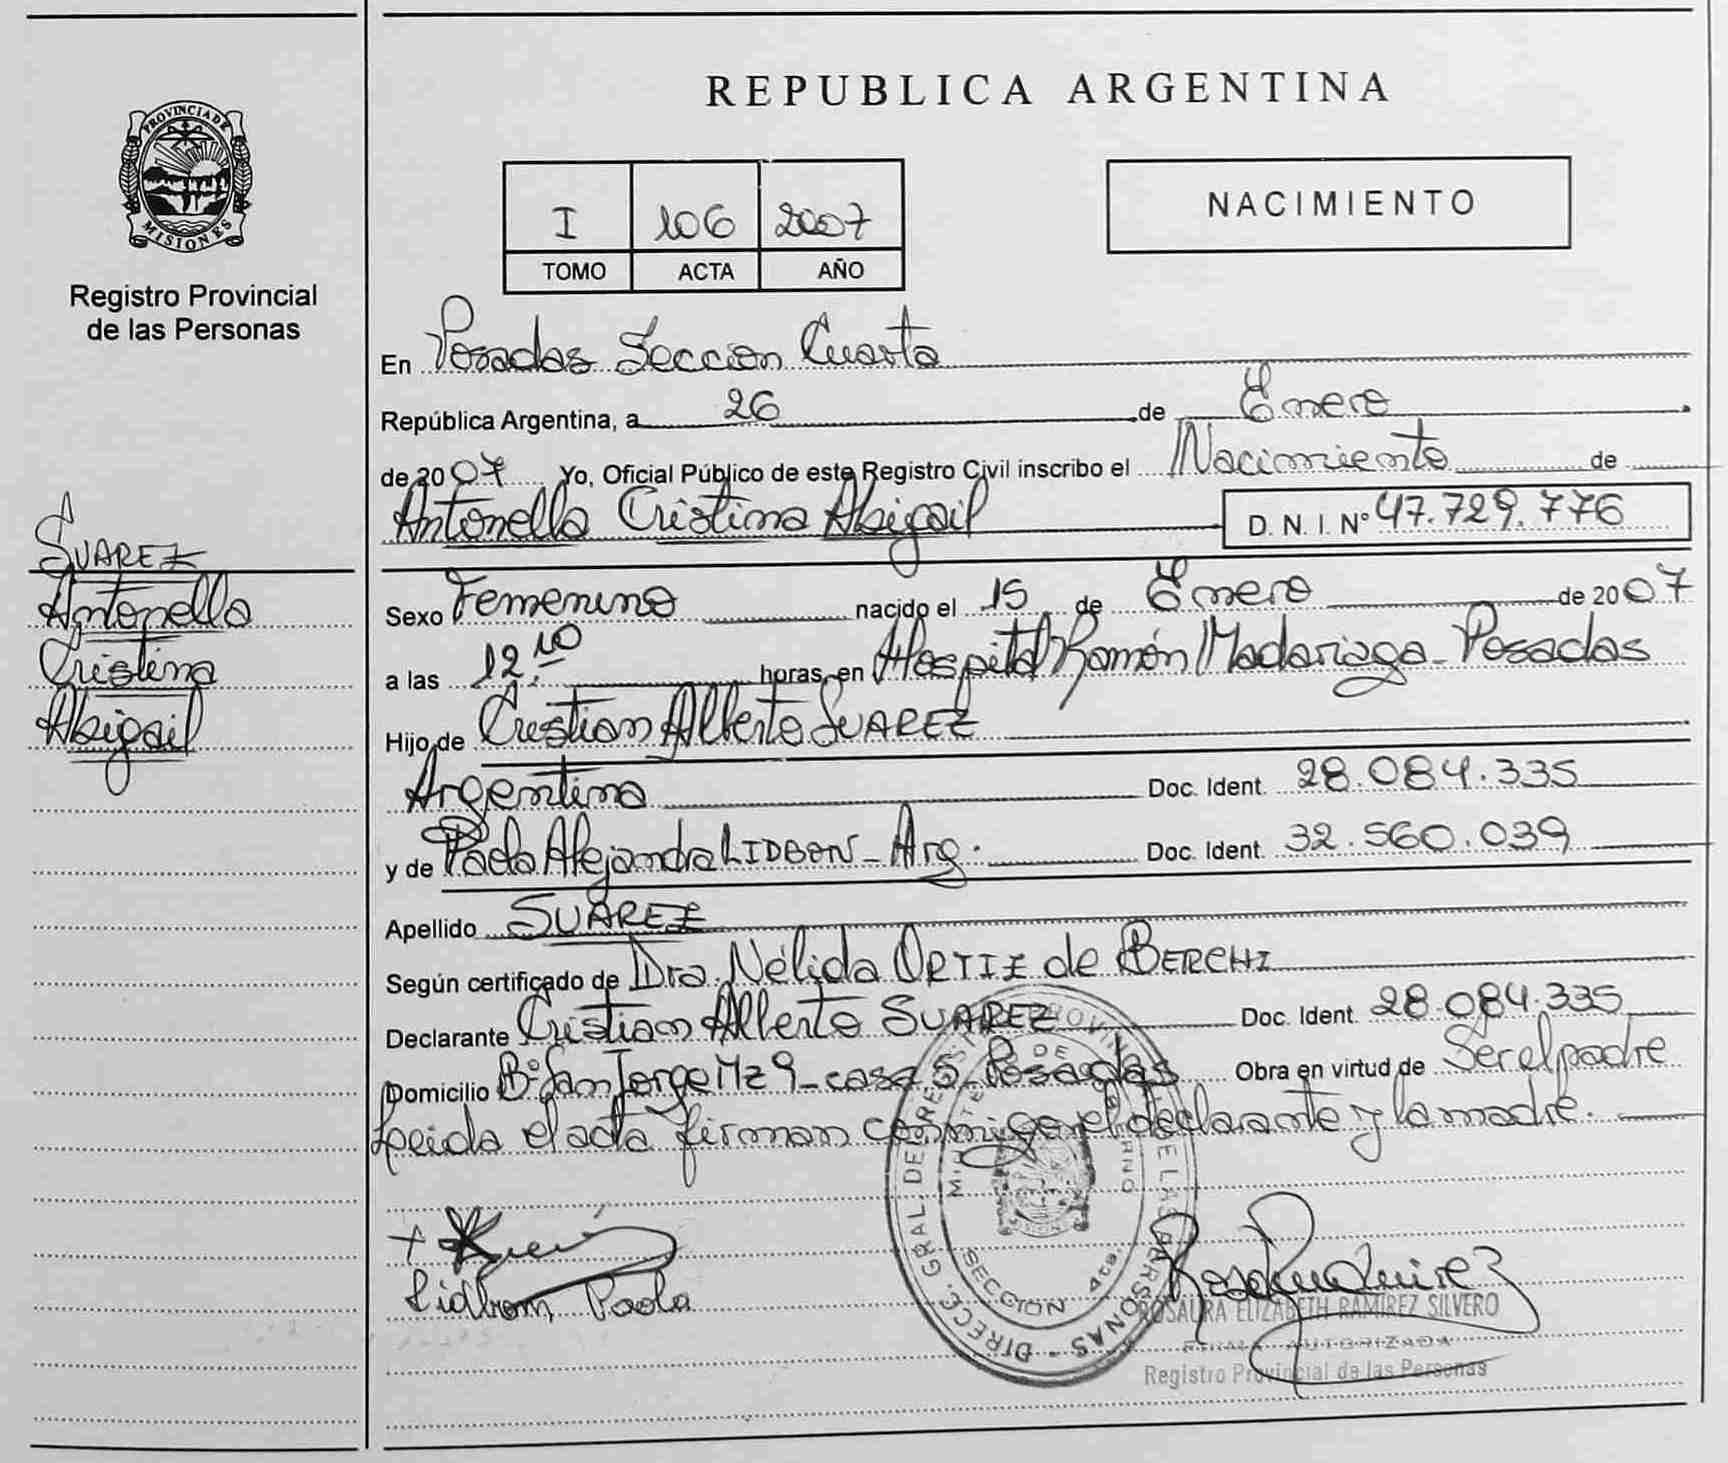 PROVINCIA DE
MISIONES
Registro Provincial
de las Personas
SUAREZ
Antonella
Cristina
Abigail
REPUBLICA ARGENTINA
I 106 2007
TOMO ACTA AÑO
NACIMIENTO
En Posadas Seccion Cuarta
República Argentina, a 26 de Enero
de 2007 Yo, Oficial Público de este Registro Civil inscribo el Nacimiento de
Antonella Cristina Abigail D. N. I. Nº 47.729.776
Sexo Femenino nacido el 15 de Enero de 2007
a las 12:10 horas, en Hospital Ramón Madariaga - Posadas
Hijo de Cristian Alberto SUAREZ
Argentina Doc. Ident. 28.084.335
y de Paola Alejandra LIDBON - Arg. Doc. Ident. 32.560.039
Apellido SUAREZ
Según certificado de Dra. Nélida ORTIZ de BERCHI
Declarante Cristian Alberto SUAREZ Doc. Ident. 28.084.335
Domicilio Bº San Jorge Mz 9 - casa 5 - Posadas Obra en virtud de Ser el padre
Leida el acta firman conmigo el declarante y la madre.
Lidbom Paola
DIREC. GRAL. DE REGIST. PROVINC. DE LAS PERSONAS
SECCION 4ta.
ROSAURA ELIZABETH RAMIREZ SILVERO
FIRMA AUTORIZADA
Registro Provincial de las Personas